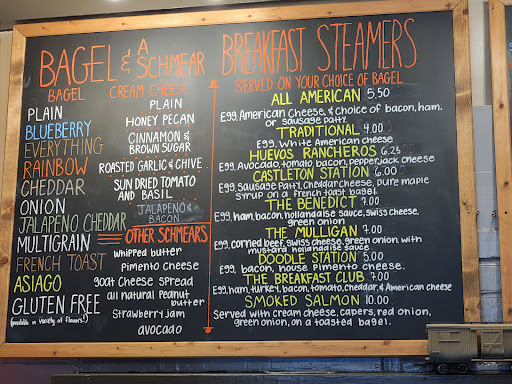 BAGEL & A SCHMEAR
BAGEL
PLAIN
BLUEBERRY
EVERYTHING
RAINBOW
CHEDDAR
ONION
JALAPENO CHEDDAR
MULTIGRAIN
FRENCH TOAST
ASIAGO
GLUTEN FREE
(available in variety of flavors!)
CREAM CHEESE
PLAIN
HONEY PECAN
CINNAMON &
BROWN SUGAR
ROASTED GARLIC & CHIVE
SUN DRIED TOMATO
AND BASIL
JALAPENO &
BACON
OTHER SCHMEARS
whipped butter
Pimento cheese
goat cheese spread
all natural Peanut
butter
Strawberry jam
avocado
BREAKFAST STEAMERS
SERVED ON YOUR CHOICE OF BAGEL
ALL AMERICAN 5.50
Egg, American cheese, & choice of bacon, ham,
or sausage patty.
TRADITIONAL 4.00
Egg, White American cheese
HUEVOS RANCHEROS 6.25
Egg, Avocado, tomato, bacon, pepperjack cheese
CASTLETON STATION 6.00
Egg, sausage patty, cheddar cheese, pure maple
syrup on a french toast bagel.
THE BENEDICT 7.00
Egg, ham, bacon, hollandaise sauce, swiss cheese,
green onion
THE MULLIGAN 7.00
Egg, corned beef, swiss cheese, green onion with
mustard hollandaise sauce
DOODLE STATION 5.00
Egg, bacon, house pimento cheese.
THE BREAKFAST CLUB 7.00
Egg, ham, turkey, bacon, tomato, cheddar, & American cheese
SMOKED SALMON 10.00
Served with cream cheese, capers, red onion,
green onion, on a toasted bagel.